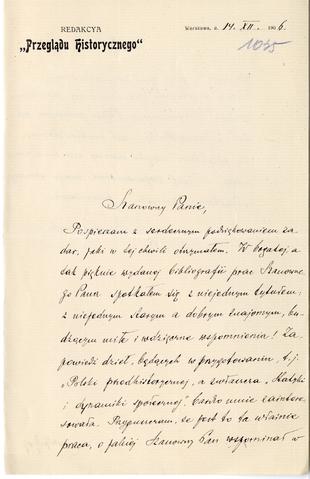 REDAKCYA
„Przeglądu Historycznego"
Warszawa, d. 14. XII. 1906.
1035
Szanowny Panie,
Pospieszam z serdecznym podziękowaniem za
dar, jaki w tej chwili otrzymałem. W bogatej, a
tak pięknie wydanej bibliografii prac Szanowne-
go Pana spotkałem się z niejednym tytułem,
z niejednym starym a dobrym znajomym, bu-
dzącym miłe i wdzięczne wspomnienia! Za-
powiedź dzieł, będących w przygotowaniu, t. j.
„Polski przedhistorycznej, a zwłaszcza „Statyki
i dynamiki społecznej", bardzo mnie zaintere-
sowała. Przypuszczam, że jest to ta właśnie
praca, o jakiej Szanowny Pan wspominał w